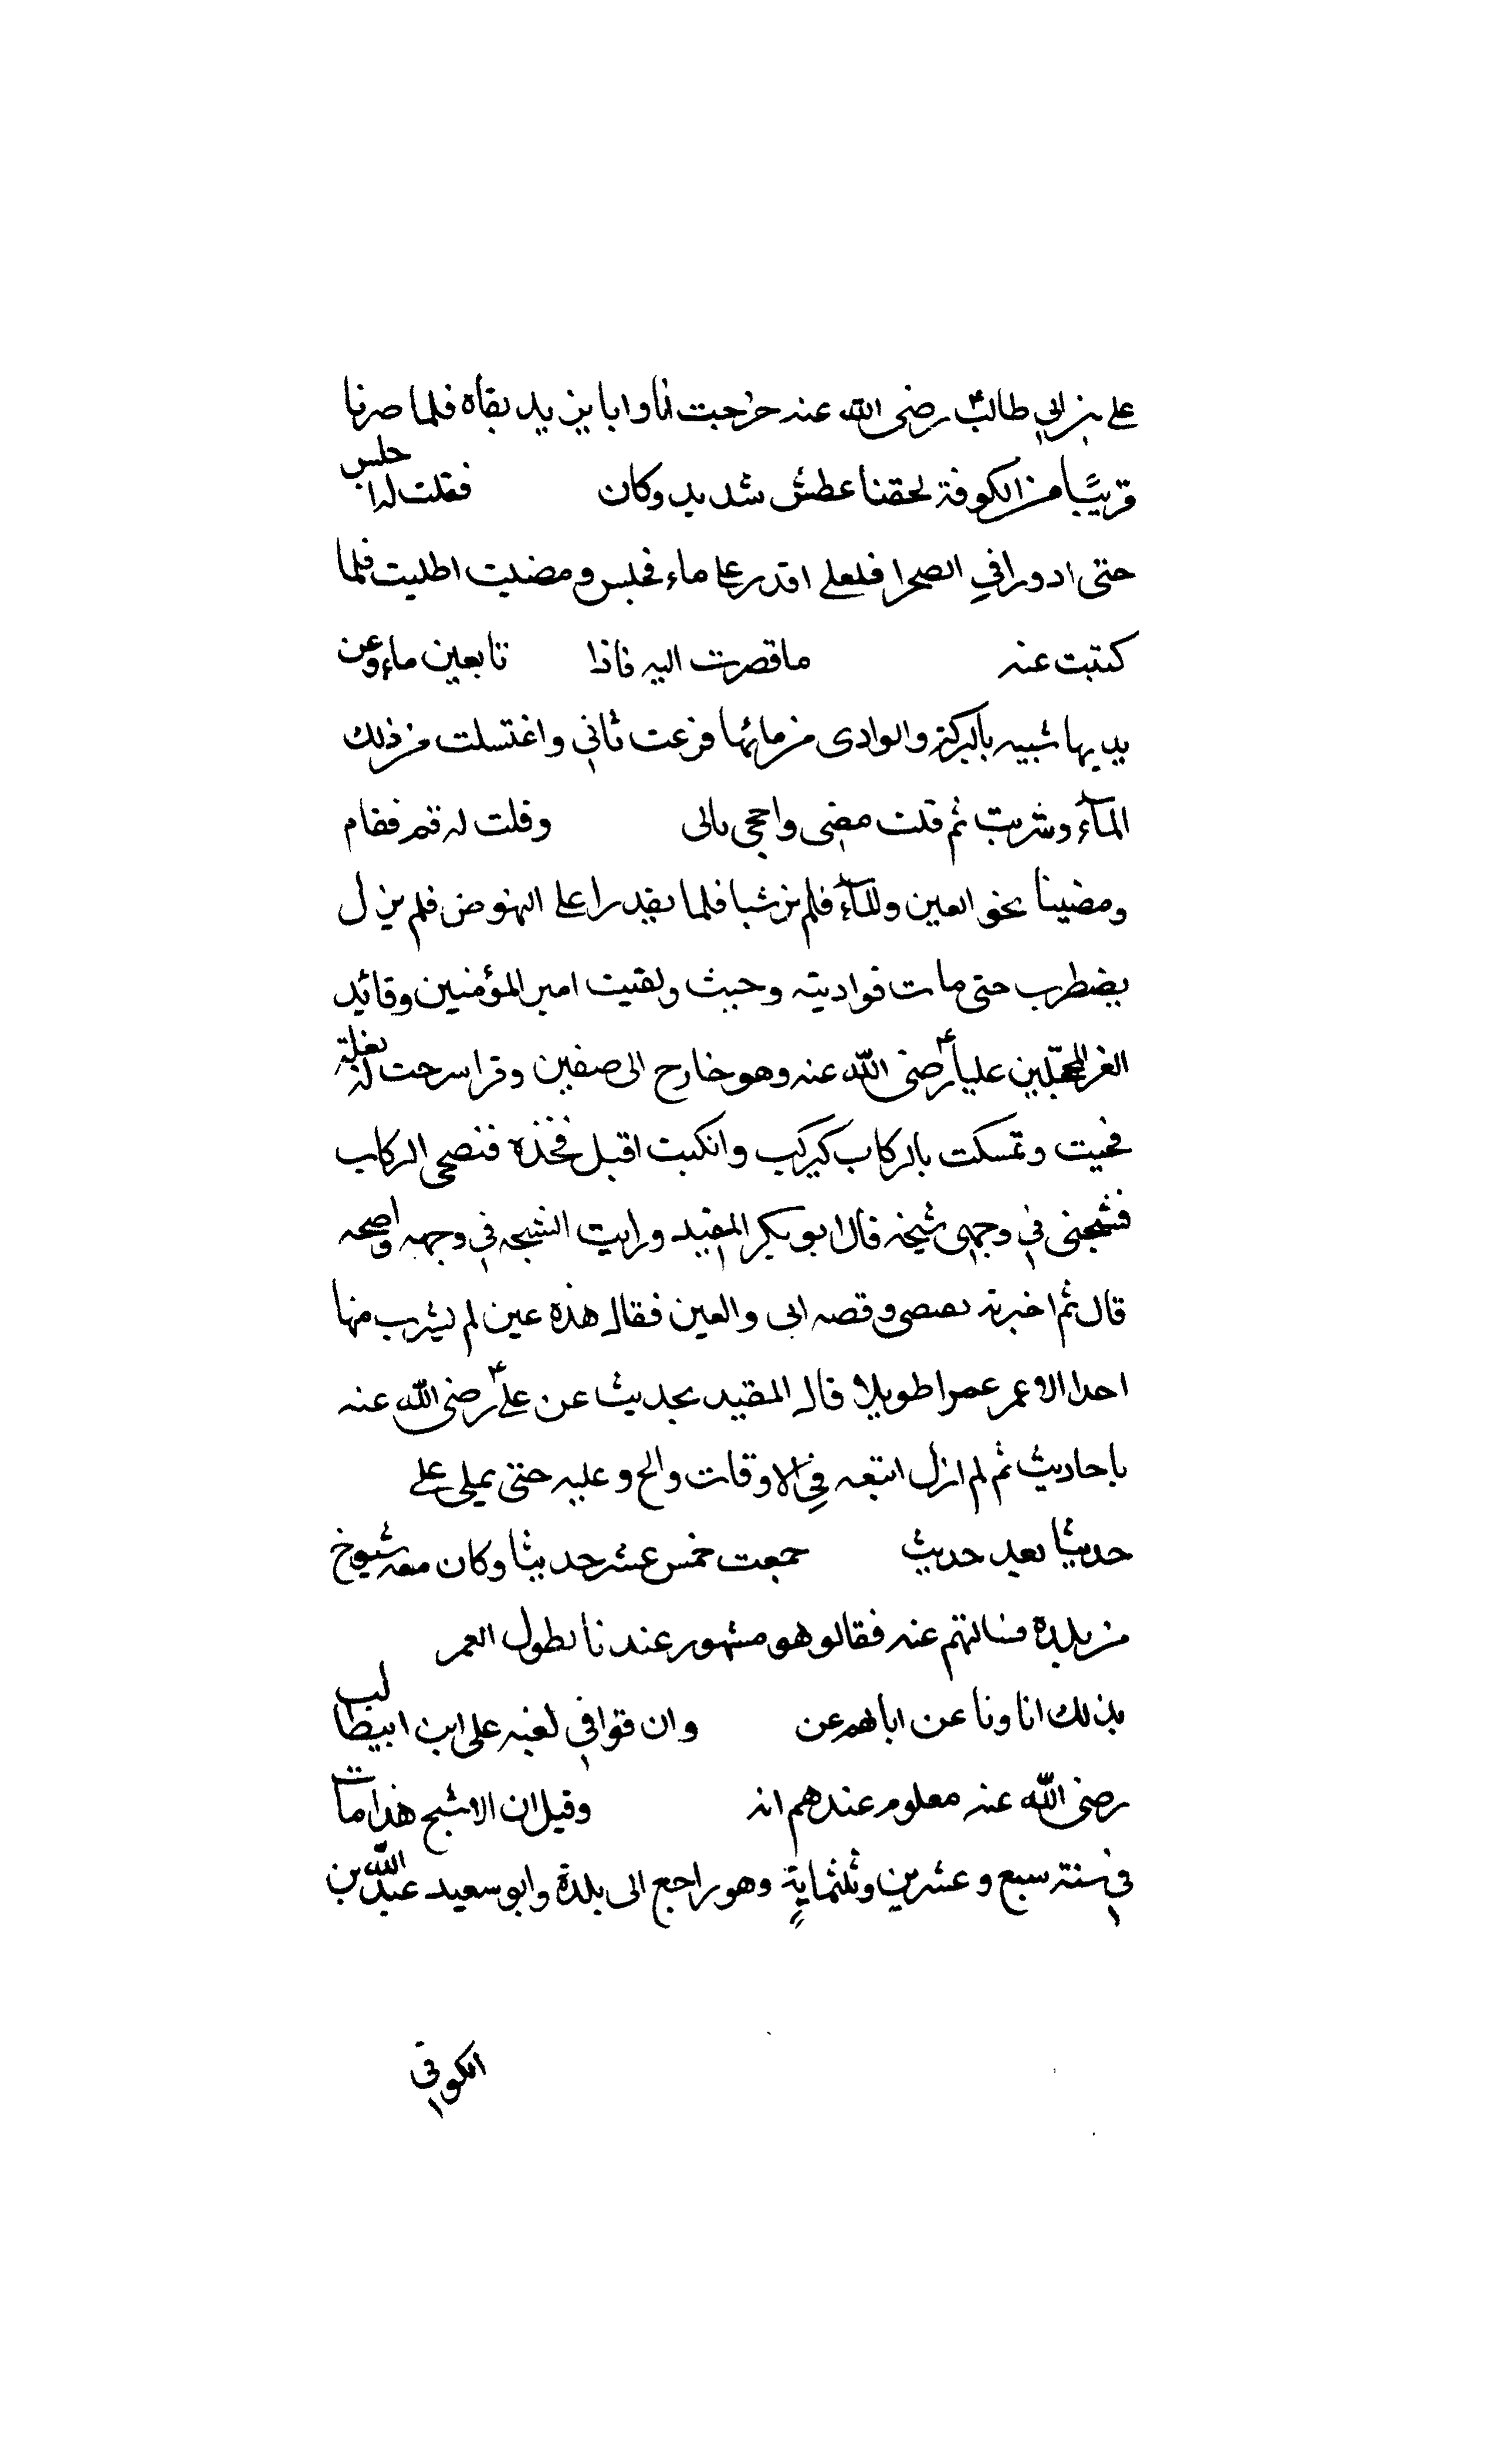 علے بن ابي طالبؑ رضى الله عنه خرجت انا وابا يزيد بقاه فلما صرنا
قريبًا من الكوفة لحقنا عطش شديد وكان فقلت له اجلس
حتى ادور في الصحرا فلعلے اقدر علے ماء فجلس ومضيت اطليت فلما
كنتبت عنه ماقصرت اليه فاذا تابعين ماء وعن
يديها شبيه بالبركة والوادى من مائها فزعت ثاني واغتسلت من ذلك
المآء وشربت ثم قلت مضى واحجى بالى وقلت له قم فقام
ومضينا نحو العين والمآء فلم نر شيا فلما يقدر اعلے النهوض فلم يزل
يضطرب حتى مات فواديته وجيث ولقيت امير المؤمنين وقائد
الغر المحجلين علياؑ رضى الله عنه وهو خارج الى صفين وقد اسرجت له بغلة
فجيت وتمسكت بالركاب كيركب وانكبت اقبل فخذه فنصحى الركاب
فشجنى في وجهى شيخه قال ابو بكر المفيد ورايت الشجه في وجهه واصحه
قال ثم اخبرته بقصى وقصه ابى والعين فقال هذه عين لم يشرب منها
احد الا عمر عمرا طويلا قال المقيد بحديث عن علےؑ رضى الله عنه
باحاديث ثم لم ازل اتبعه في الاوقات والح وعليه حتى يملى علے
حديثا بعد حديث جمعت خمس عشر حديثا وكان معه شيوخ
من بلده فسالتهم عنه فقالو هو مشهور عندنا بطول العمر
بذلك انا ونا عن اباهم عن وان قوافي لغبه على ابن ابيطالب
رضى الله عنه معلوم عندهم انه وقيل ان الاشج هذا مات
في سنة سبع وعشرين وثلثماية وهو راجع الى بلدة وابو سعيد عبد الله بن
الكوفى